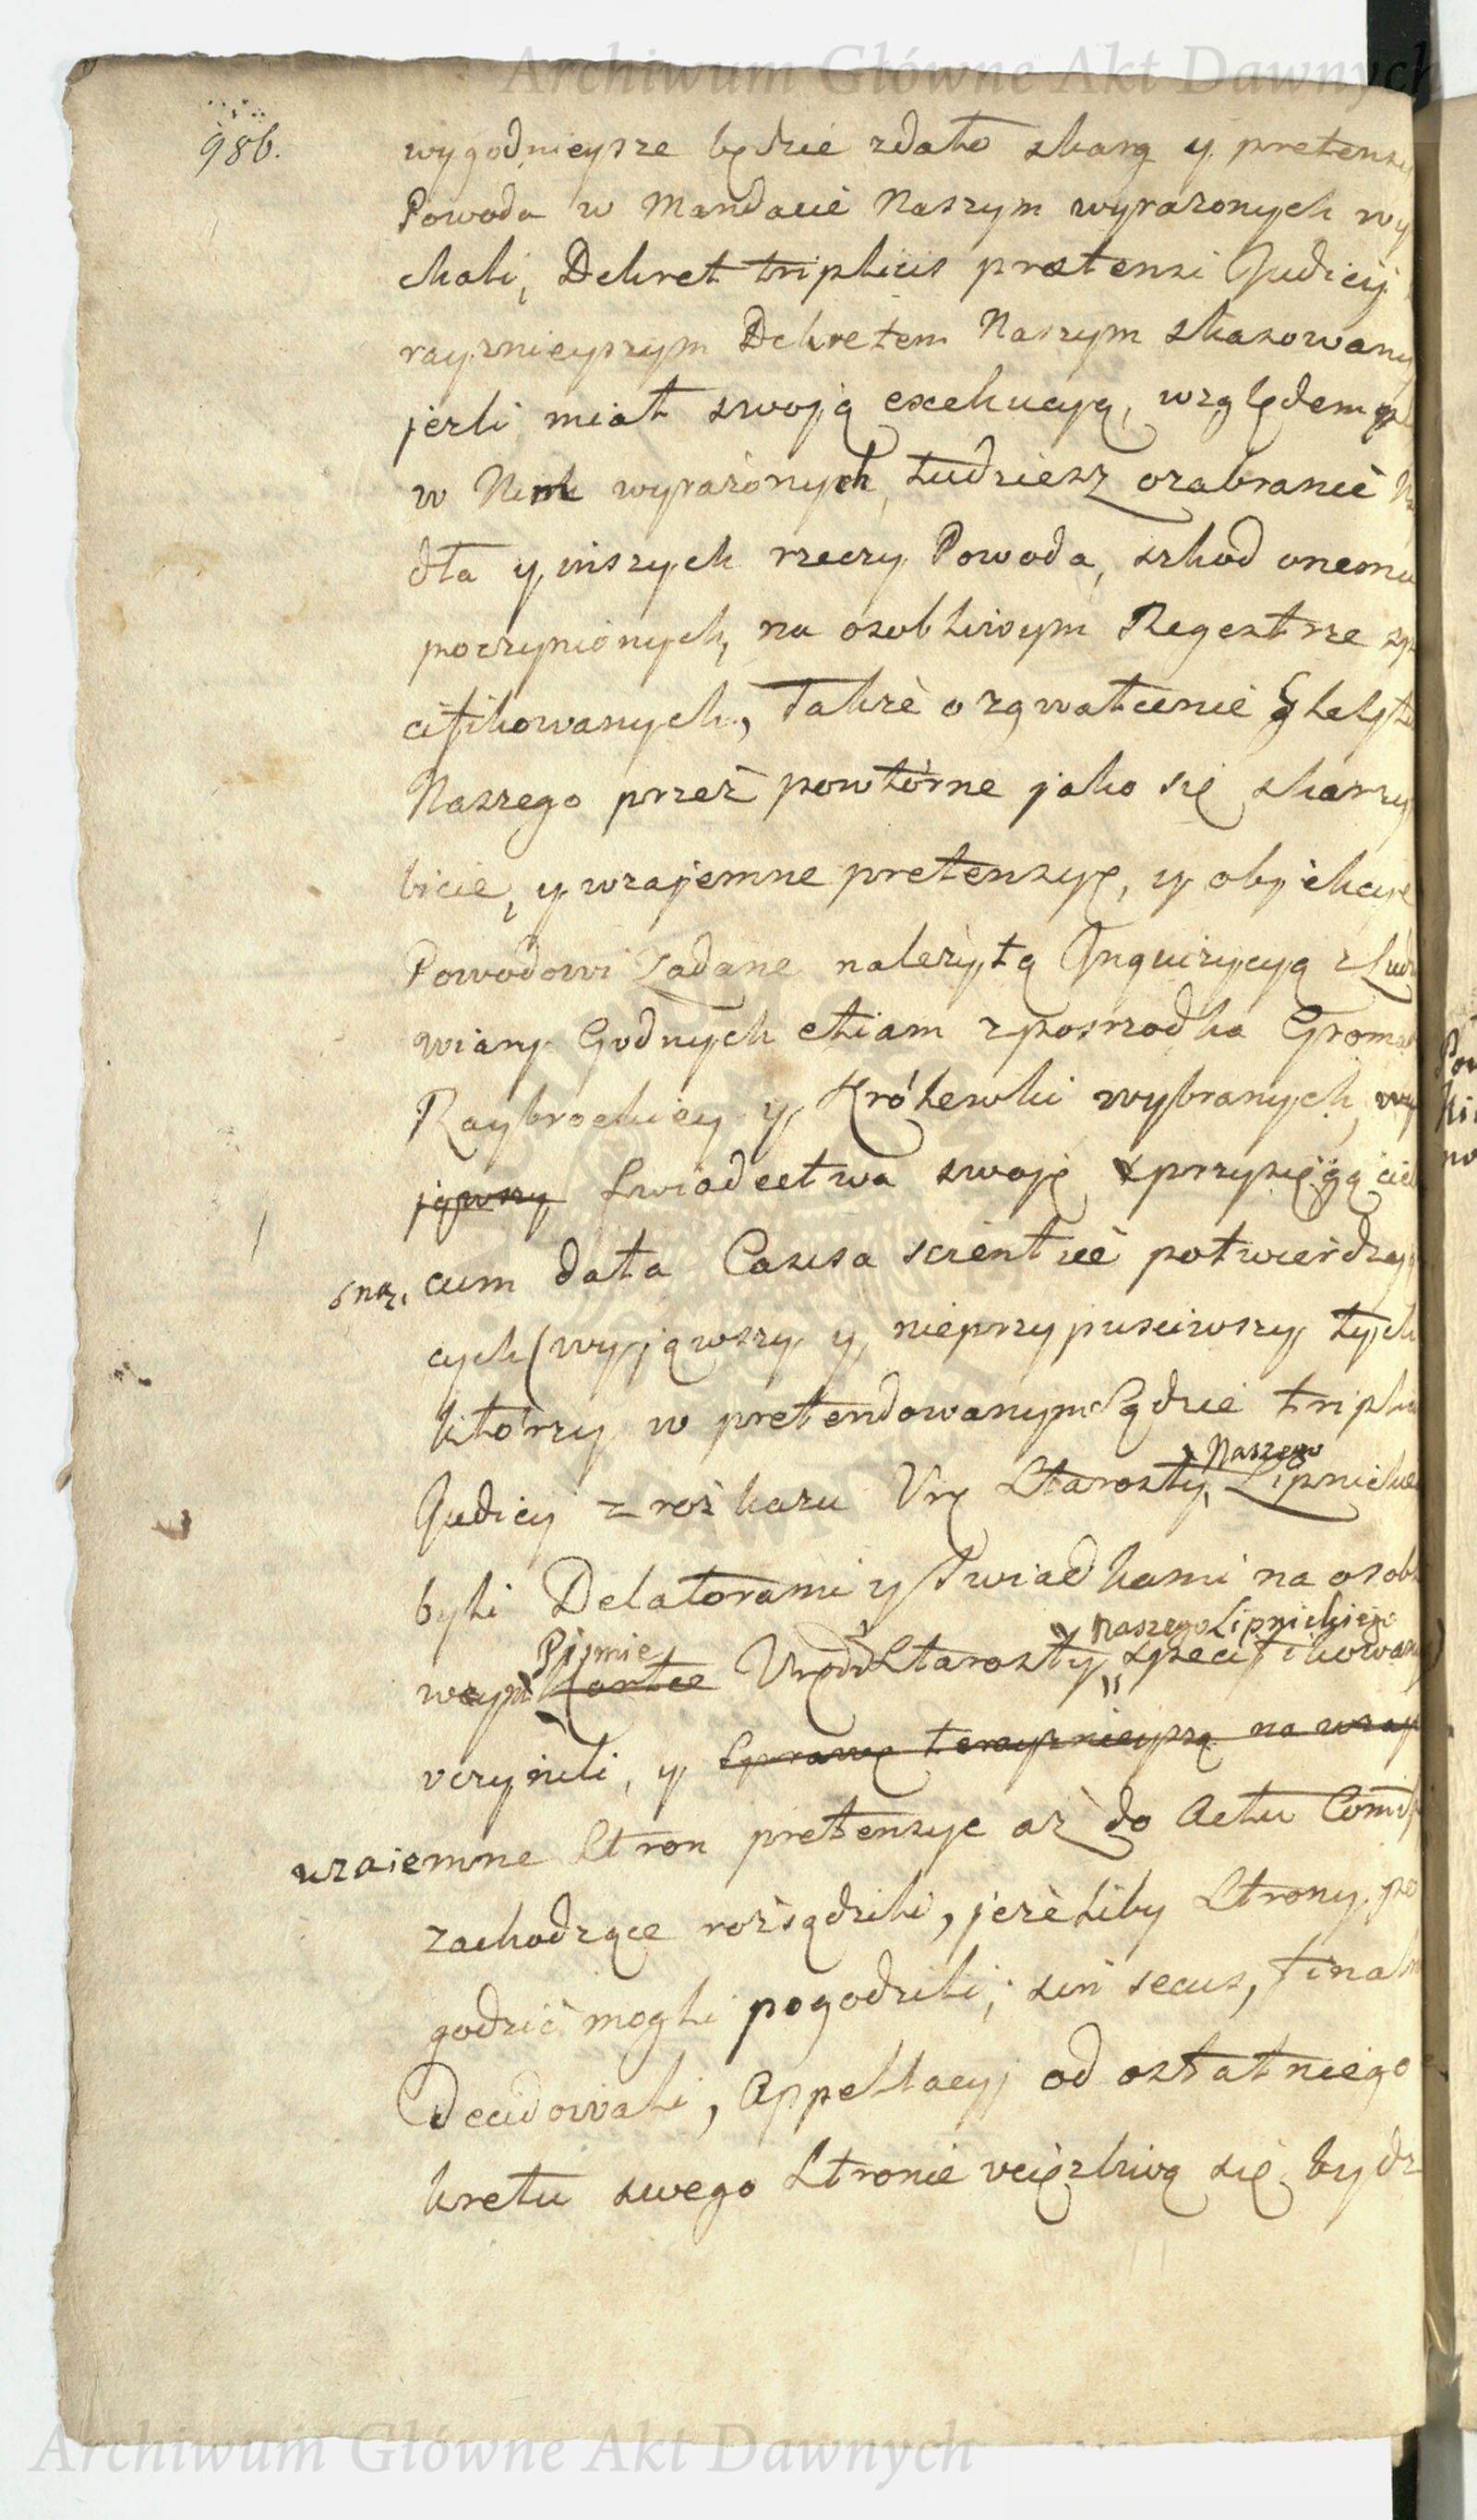 Archiwum Główne Akt Dawnych
986.
wygodnieysze będzie zdało skarg y pretensy
Powoda w Mandacie Naszym wyrażonych wy
chali, Dekret triplicis prætensi Judicij
rayznieyszym Dekretem Naszym skasowany
jeżli miał swoją exekucyą, względem
w Nim wyrażonych, tudziesz ozabranie
dła y inszych rzeczy Powoda, szkod onemu
poczynionych, na osobliwym Regestrze spe
cifikowanych, Także o zgwałcenie Gleytu
Naszego przez powtórne jako się skarzy
bicie, y wzajemne pretensye, y objekcye
Powodowi Zadane należytą Inquizycyą z Ludzi
wiary Godnych etiam zposrzodka Gromad
Raybrockiey y Królewki wybranych, wy
jąwszy Swiadectwa swoje zprzysięgą cie
sną, cum data Causa scientiæ potwierdzają
cych (wyjąwszy y nieprzypusciwszy tych
którzy w pretendowanym Sądzie triplicis
Judicij z roskazu Ur̃ Starosty Naszego Lipnickie
byli Delatorami y Swiadkami na osobli
wym Kartce Pismie Urodz Starosty Naszego Lipnickiego specifikowani)
uczynili, y Sprawę terazńieyszą na wzaj
wzaiemne Stron pretensye aż do Actu Comiss
zachodzące rozsądzili, jeżeliby Strony po
godzić mogli pogodzili; sin secus, finaln
Decidowali, Appellacyj od ostatniego
kretu swego Stronie uciążliwą się bydz
Pow
ki
no
Archiwum Główne Akt Dawnych